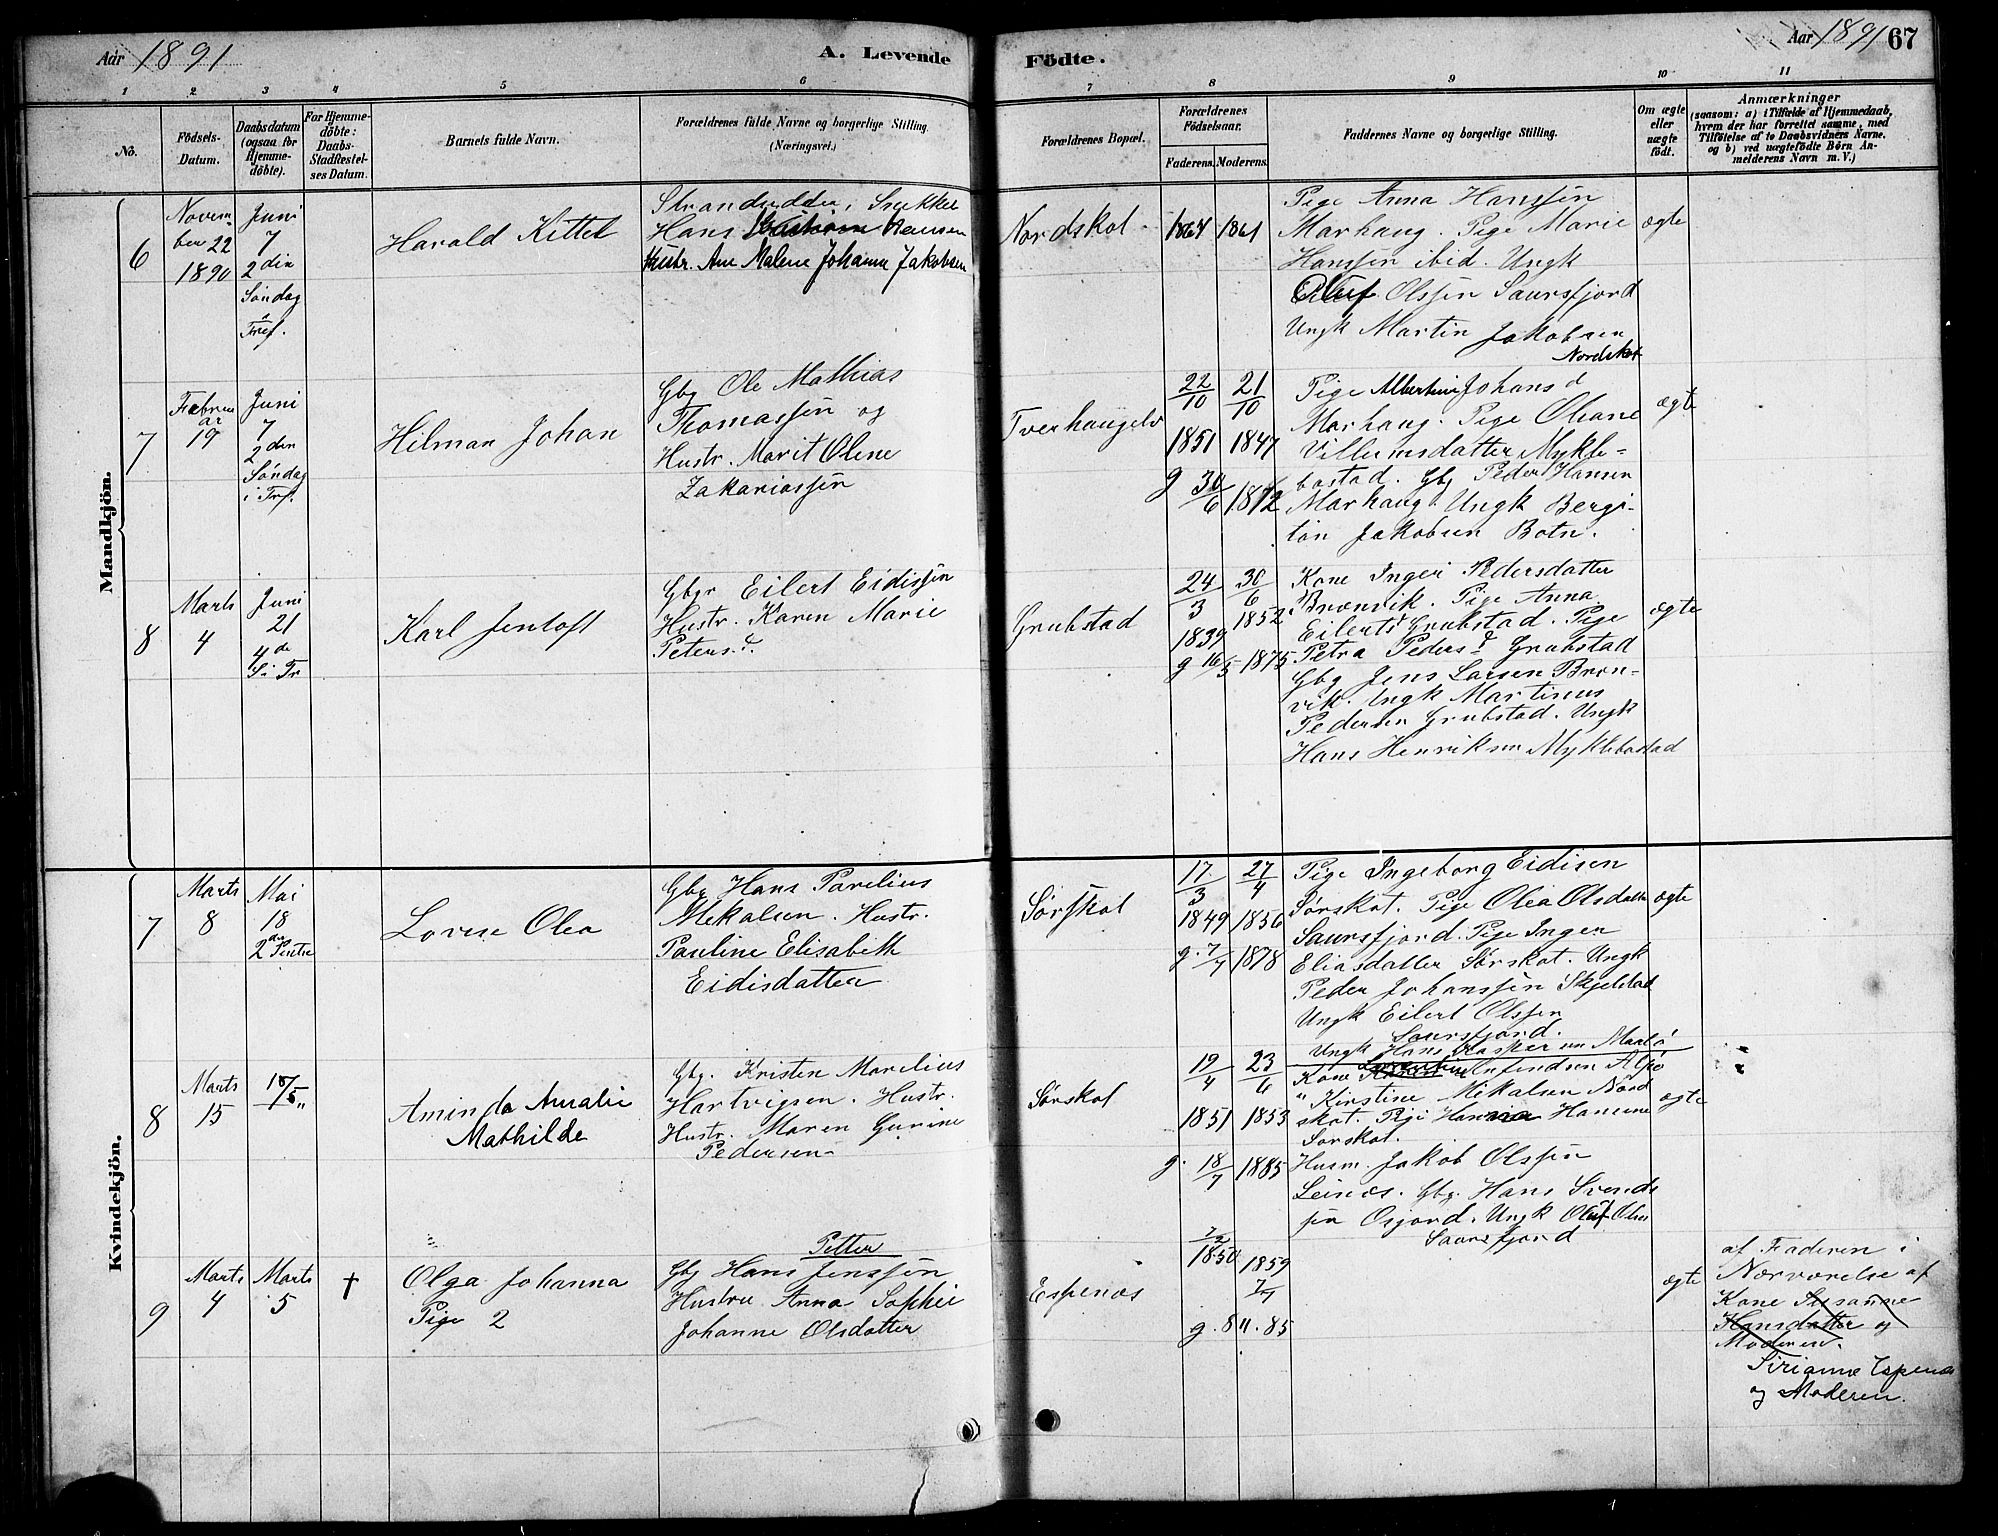 Aar 1891
A. Levende
Födte.
Aar 1891
67
1 2 3 4 5 6 7 8 9 10 11
No.
Födsels-Datum.
Daabsdatum (ogsaa for Hjemme-döbte).
For Hjemme-döbte: Daabs-Stadfæstel-ses Datum.
Barnets fulde Navn.
Forældrenes fulde Navne og borgerlige Stilling.
(Næringsvei.)
Forældrenes Bopæl.
Forældrenes Födselsaar.
Faderens. Moderens.
Faddernes Navne og borgerlige Stilling.
Om ægte eller uægte födt.
Anmærkninger
(saasom: a) i Tilfælde af Hjemmedaab,
hvem der har forrettet samme, med
Tilföielse af to Daabsvidners Navne.
og b) ved uægtefödte Börn An-
melderens Navn m. V.)
Mandkjön.
6
Novem
ber 22
1890
Juni
7
2den
Søndag
i
Tref.
Harald Kittel
Strandsidder, Snekker
Hans Hansen
Hustr. Ane Malene Johanna Jakobsen
Nordskot
1864 1861
Pige Anna Hanssen
Marhaug. Pige Marie
Hanssen ibid. Ungk
Oluf Olssen Saursfjord
Ungk Martin Jakobsen
Nordskot
ægte
7
Februar
19
Juni
7
2den
Søndag
i Trf.
Hilman Johan
Gbg Ole Mathias
Thomassen og
Hustr. Marit Olene
Zakariassen
Tverhaugelv
22/10 1851
21/10 1847
g 30/6 1872
Pige Albertine Johans d
Marhaug. Pige Oliane
Villumsdatter Mykle-
bostad. Gbg Peder Hansen
Marhaug. Ungk Bergi-
ton Jakobsen Botn.
ægte
8
Marts
4
Juni
21
4de
S. i Tr
Karl Jentoft
Gbgr Eilert Eidissen
Hustr. Karen Marie
Peters d.
Grubstad
24/3 1839
30/6 1852
g 16/5 1875
Kone Inger Pedersdatter
Brænvik. Pige Anna
Eilerts d Grubstad. Pige
Petra Peders d Grubstad
Gbg Jens Larsen Bron-
vik. Ungk Martinus
Pedersen Grubstad. Ungk
Hans Henriksen Myklebostad
ægte
Kvindekjön.
7
Marts
8
Mai
18
2den Pintse
Lovise Olea
Gbg Hans Parelius
Mekalsen. Hustr.
Pauline Elisabeth
Eidisdatter
Sørskot
17/3 1849
27/4 1856
g. 7/7 1878
Pige Ingeborg Eidisen
Sørskot. Pige Olea Olsdatter
Saursfjord. Pige Inger
Eliasdatter Sørskot. Ungk
Peder Johanssen Skjelstad
Ungk Eilert Olssen
Saursfjord.
ægte
8
Marts
15
18/5 "
Aminda Amalie
Mathilde
Gbg. Kristen Marelius
Hartvigsen. Hustr.
Hustr. Maren Gurine
Pedersen
Sørskot
19/4 1851
23/6 1853
g. 18/7 1885
Ungk Hans Kaspersen Maalø
Kone Arfindsen Alpø
" Kirstine Mikalsen Nord
skot. Pige Hanna Hansine
Sørskot.
Husm. Jakob Olssen
Leinæs. Gbg. Hans Svends
sen Osjord. Ungk Oluf Olsen
Saursfjord
ægte
9
Marts
4
Marts
5
†
Olga Johanna
Pige 2
Petter
Gbg Hans Jenssen
Hustru Anna Sophie
Johanne Olsdatter
Espenæs
7/2 1850
1859 7/7
g. 8 11. 85
ægte
af Faderen i
Nærværelse af
Kone Susanne
Hansdatter og
Moderen.
Sirianne Espenæs
og Moderen.